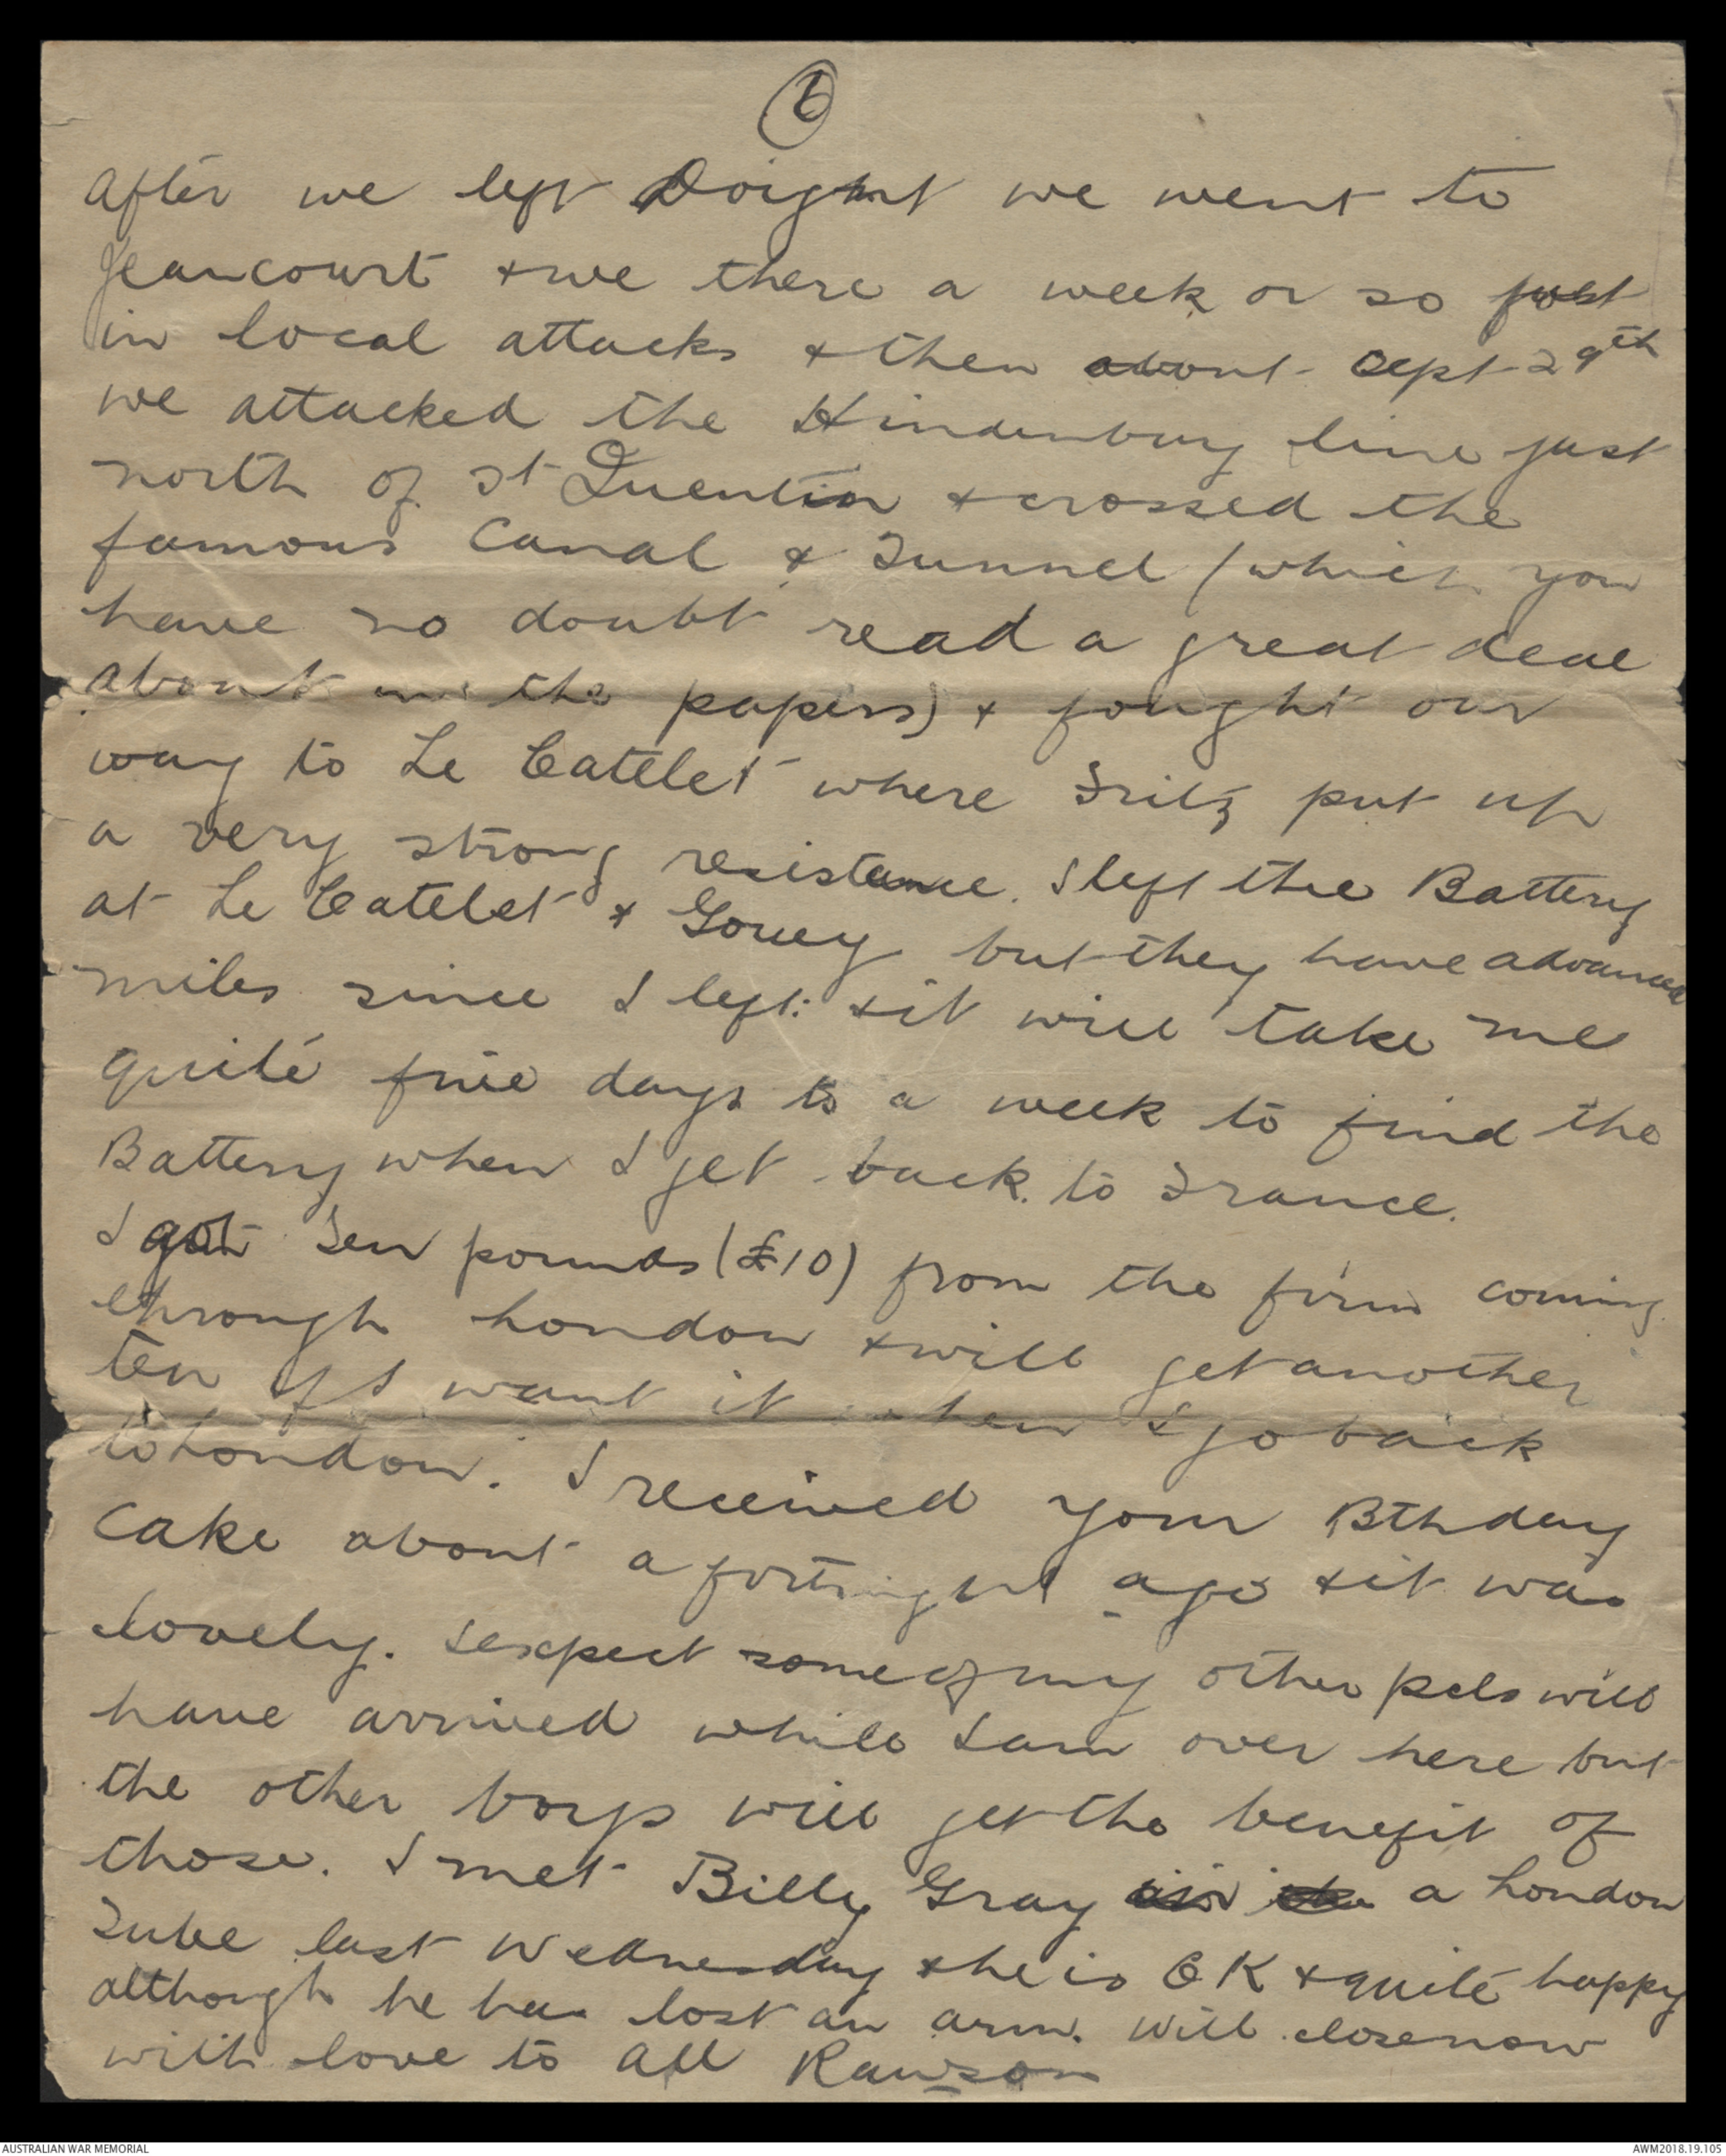 6
after we left Doignt we went to
Jeancourt & we there a week or so just
in local attacks & then about Sept 29th
we attacked the Hindenburg line just
north of St Quentin & crossed the
famous Canal & Tunnel (which you
have no doubt read a great deal
about in the papers) & fought our
way to Le Catelet where Fritz put up
a very strong resistance. I left the Battery
at Le Catelet & Gouy but they have advanced
miles since I left & it will take me
quite five days to a week to find the
Battery when I get back to France.
I got Ten pounds (£10) from the firm coming
through London & will get another
ten if I want it when I go back
to London. I received your Bthday
Cake about a fortnight ago & it was
lovely. I expect some of my other pcls will
have arrived while I am over here but
the other boys will get the benefit of
those. I met Billy Gray in the a London
Tube last Wednesday & he is OK & quite happy
although he has lost an arm. Will close now
with love to all Rawson
AUSTRALIAN WAR MEMORIAL
AWM2018.19.105